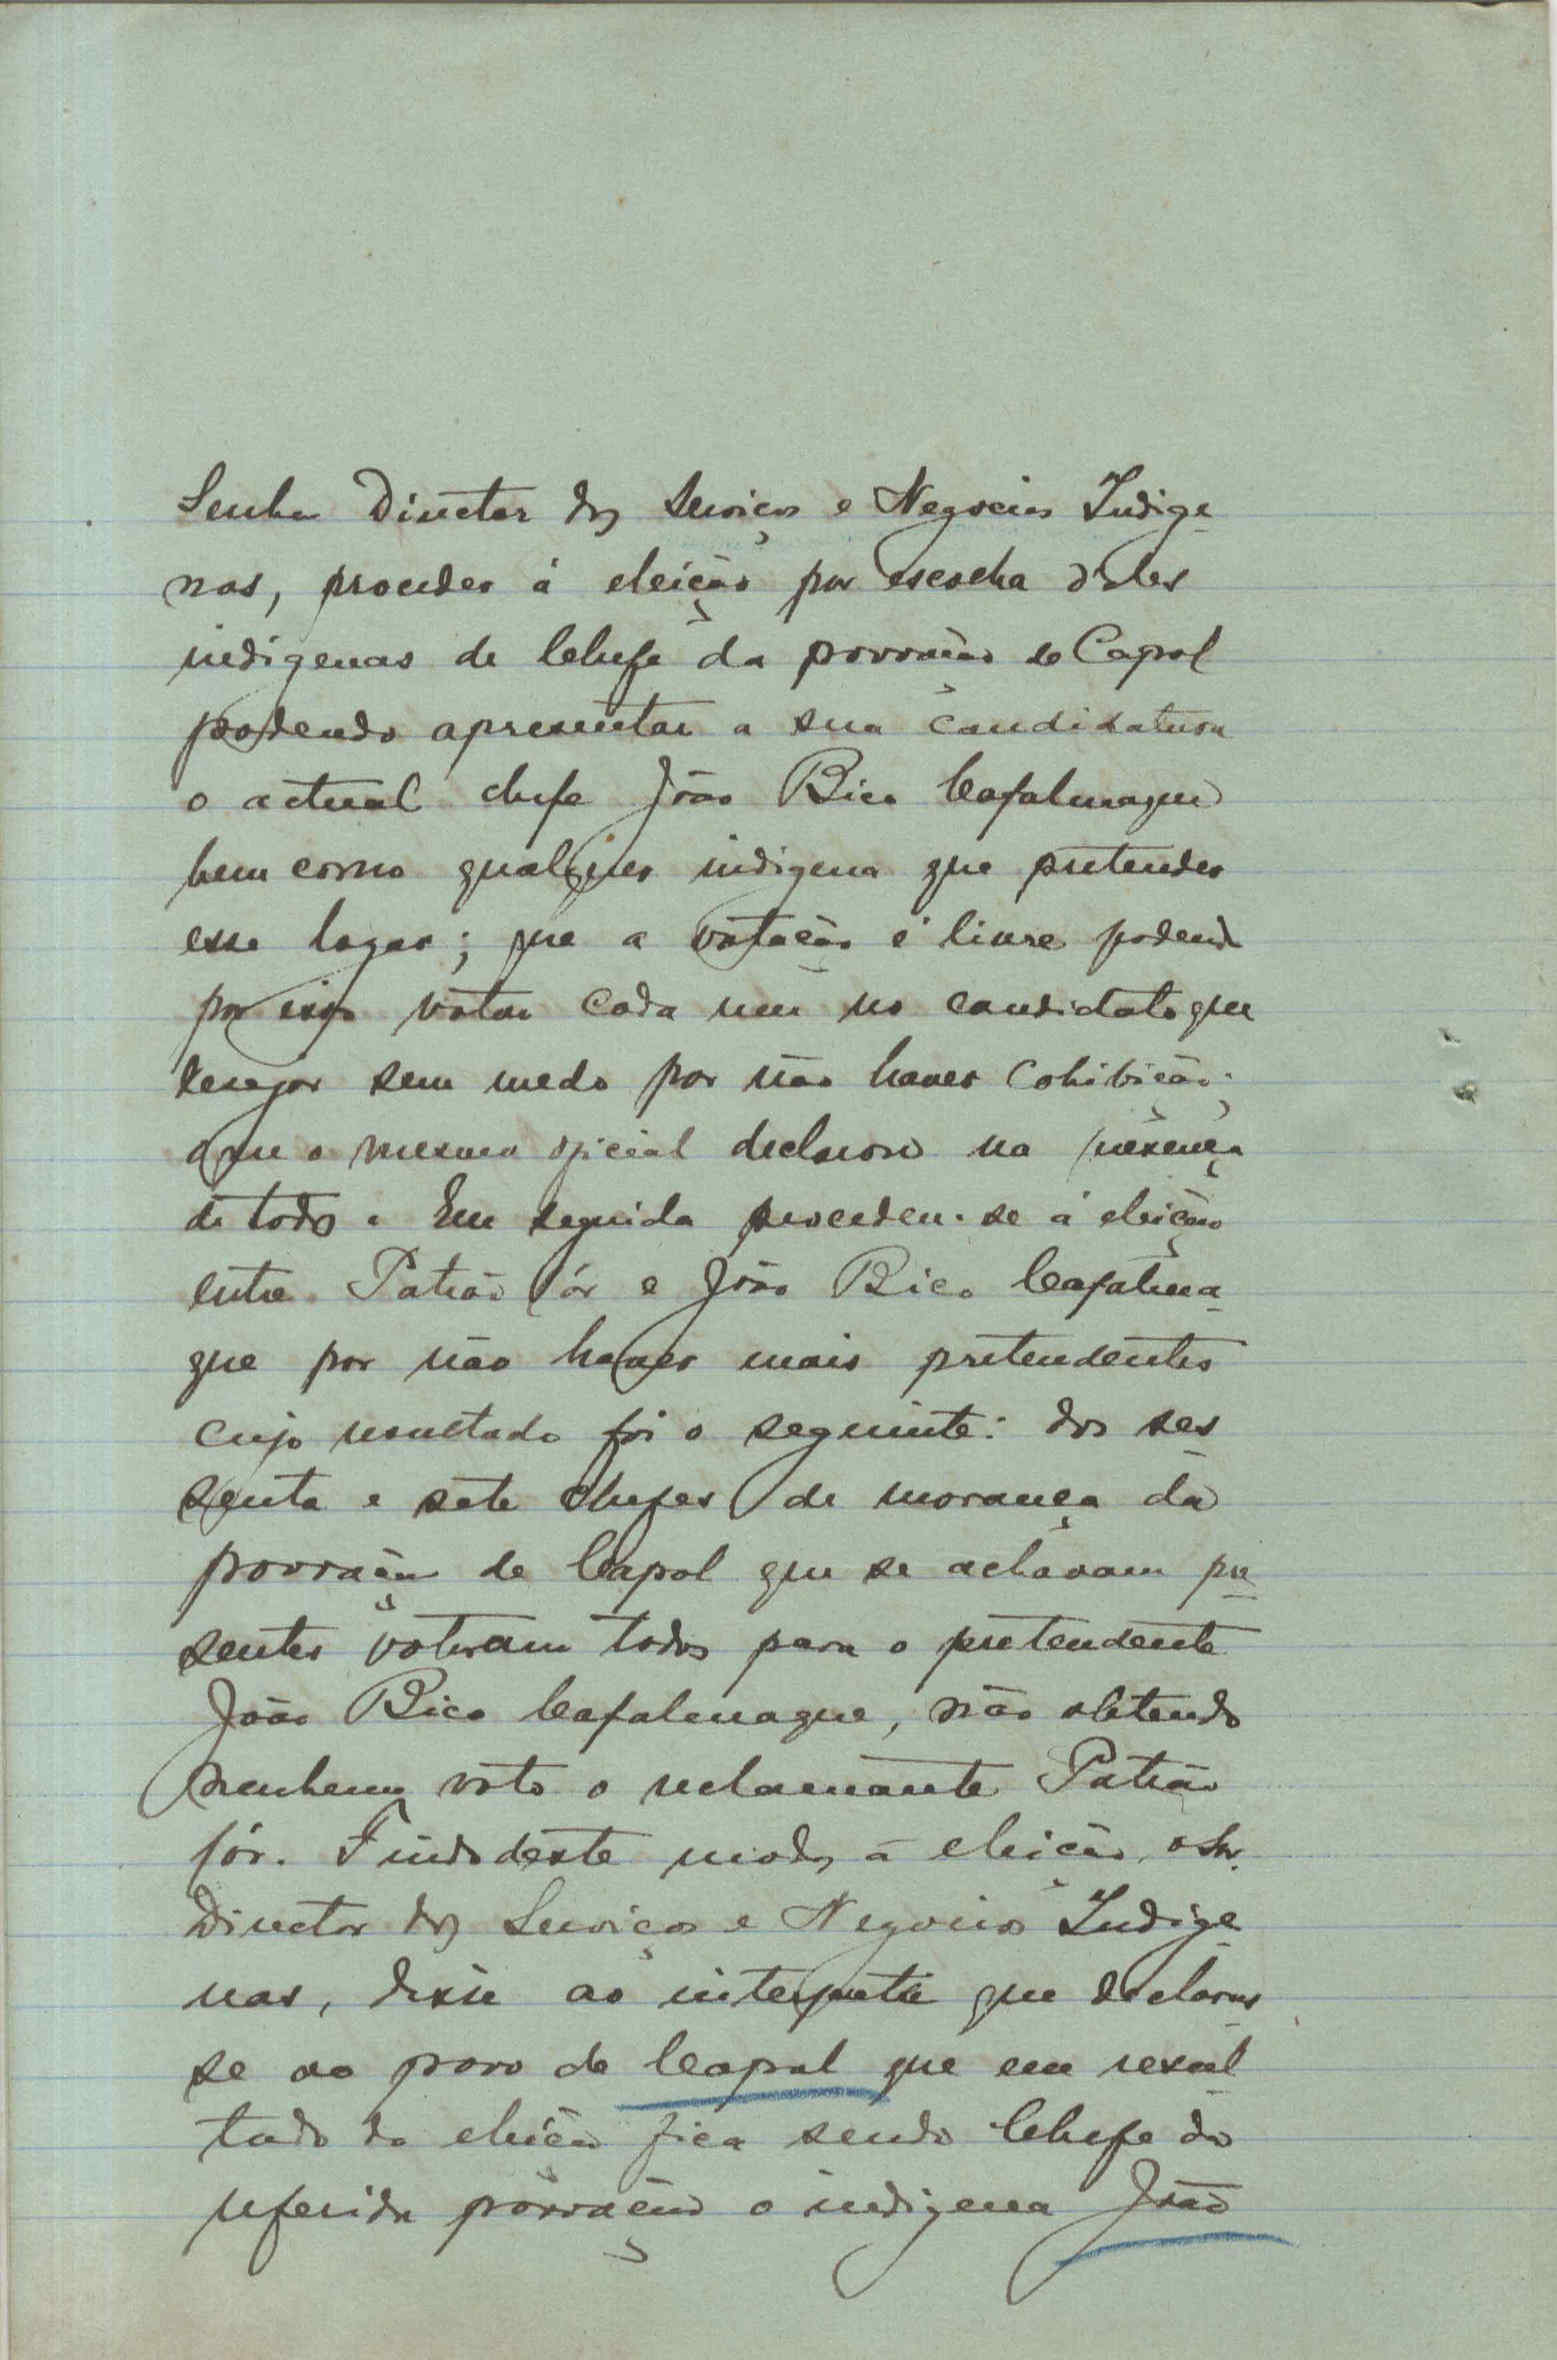 Senhor Director dos Serviços e Negocios Indige-
nas, proceder á eleição por escolha dêles
indigenas de Chefe da povoação de Capol
podendo apresentar a sua candidatura
o actual chefe João Bico Cafalmague
bem como qualquer indigena que pretender
esse logar; que a votação é livre podendo
por isso votar cada um no candidato que
desejar sem medo por não haver cohibição;
que o mesmo oficial declarou na presença
de todos. Em seguida procedeu-se á eleição
entre Patrão Iór e João Bico Cafalma-
gue por não haver mais pretendentes
cujo resultado foi o seguinte: dos ses-
senta e sete chefes de morança da
povoação de Capol que se achavam pre-
sentes votaram todos para o pretendente
João Bico Cafalmague, não obtendo
nenhum voto o reclamante Patrão
Iór. Findo deste modo a eleição, o Snr.
Director dos Serviços e Negocios Indige-
nas, disse ao interprete que declaras-
se ao povo de Capol que em resul-
tado da eleição fica sendo Chefe da
referida povoação o indigena João